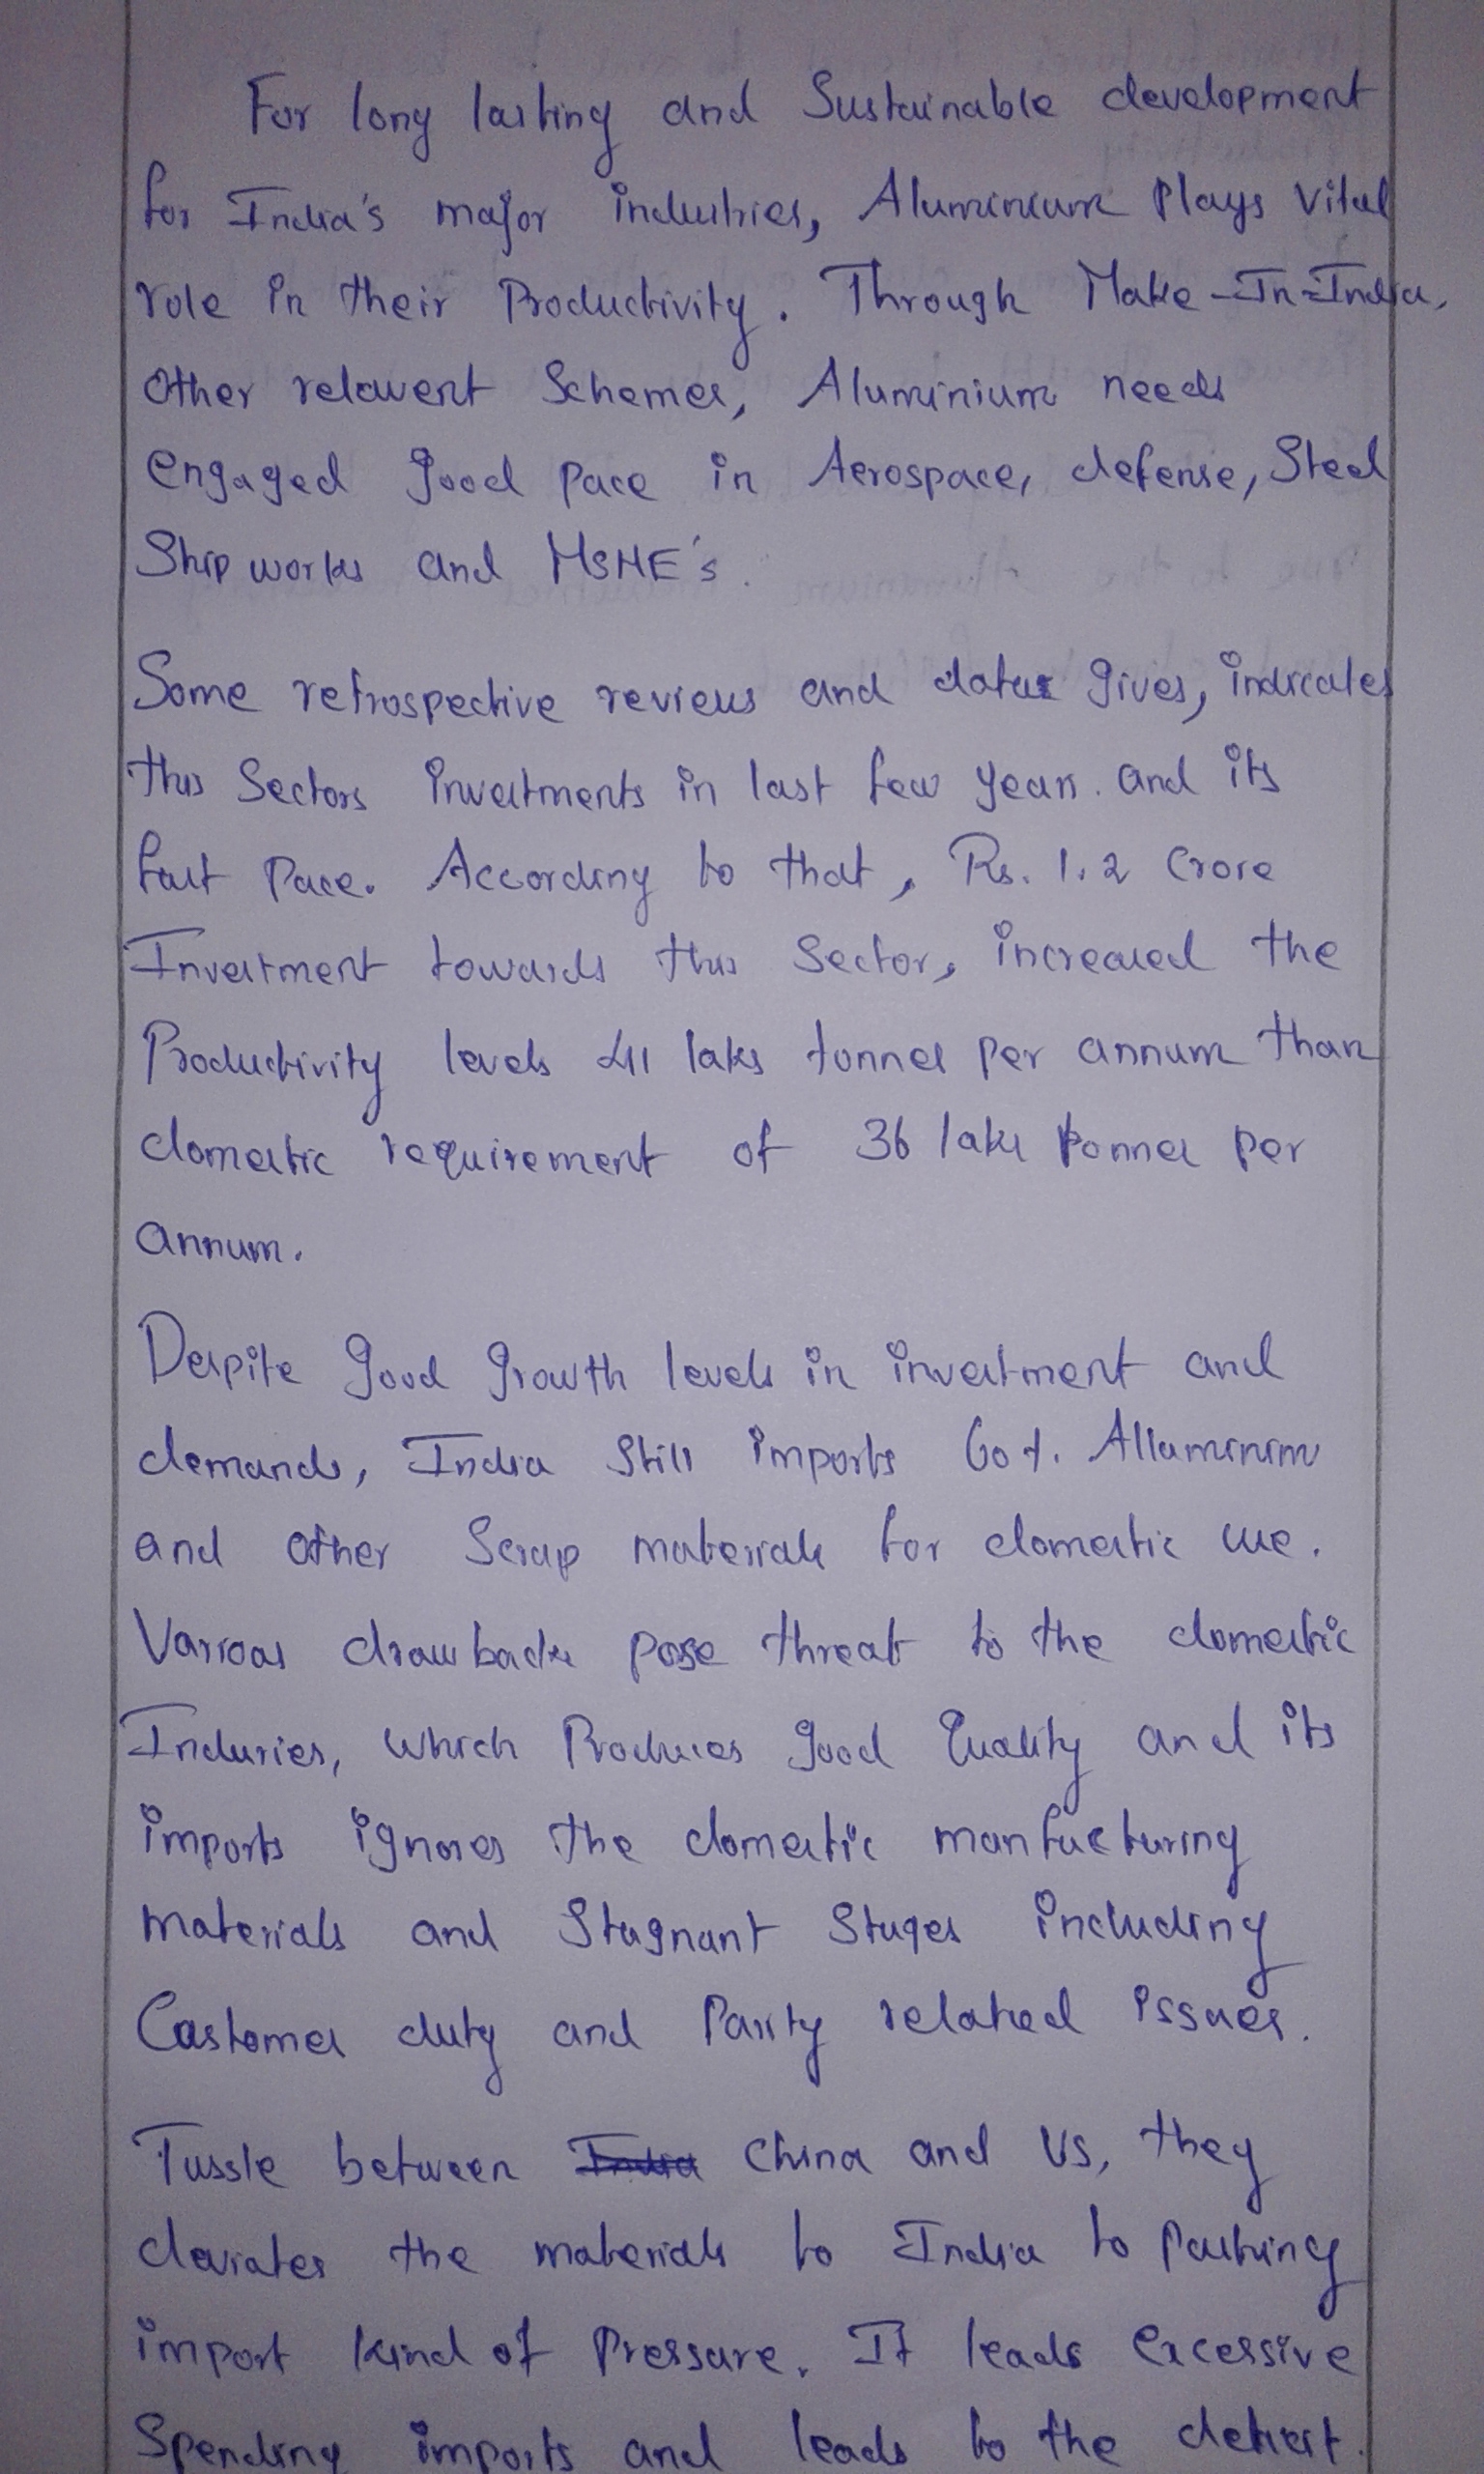 For long lasting and Sustainable development
for India's major industries, Aluminium Plays Vital
role in their Productivity. Through Make-In-India,
Other relavent Schemes, Aluminium needs
engaged good pace in Aerospace, defense, Steel
Ship works and MSME's.
Some retrospective reviews and datas gives, indicates
this Sectors investments in last few years. and its
fast Pace. According to that, Rs. 1.2 Crore
Investment towards this Sector, increased the
Productivity levels 41 laks tonnes per annum than
domestic requirement of 36 laks tonnes per
annum.
Despite good growth levels in investment and
demands, India Still imports 60%. Alluminim
and other Scrap materials for domestic use.
Various drawbacks pose threat to the domestic
Indusries, which Produces good Quality and its
imports ignores the domestic manfacturing
materials and Stagnant Stages including
Customes duty and Parity related issues.
Tussle between China and US, they
deviates the materials to India to pushing
import kind of Pressure. It leads excessive
Spending imports and leads to the deficit.